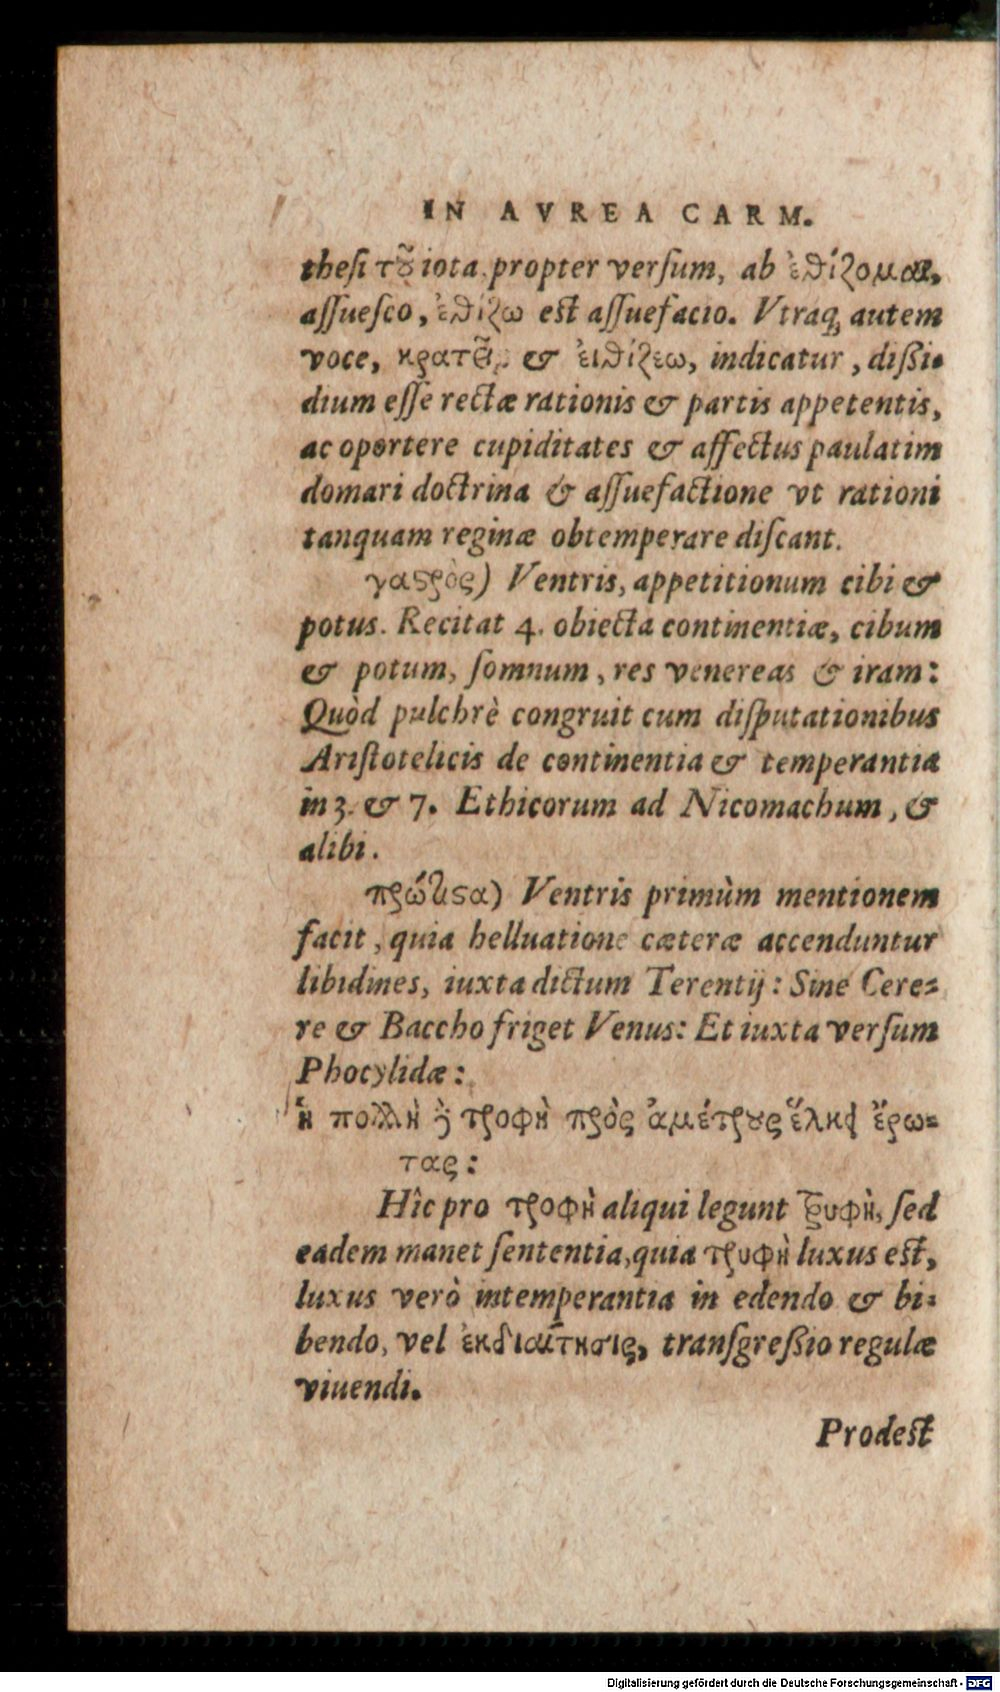 IN AVREA CARM.
theſi τοῦ iota propter verſum, ab ἐθίζομαι,
aſſueſco, ἐθίζω eſt aſſuefacio. Vtraq; autem
voce, κρατεῖν & εἰθίζεω, indicatur, diſſi-
dium eſſe rectæ rationis & partis appetentis,
ac oportere cupiditates & affectus paulatim
domari doctrina & aſſuefactione vt rationi
tanquam reginæ obtemperare diſcant.
γαστρὸς) Ventris, appetitionum cibi &
potus. Recitat 4. obiecta continentiæ, cibum
& potum, ſomnum, res venereas & iram:
Quòd pulchrè congruit cum diſputationibus
Ariſtotelicis de continentia & temperantia
in 3. & 7. Ethicorum ad Nicomachum, &
alibi.
πρώτιστα) Ventris primùm mentionem
facit, quia helluatione cæteræ accenduntur
libidines, iuxta dictum Terentij: Sine Cere-
re & Baccho friget Venus: Et iuxta verſum
Phocylidæ:
ἡ πολλὴ δὲ τροφὴ πρὸς ἀμέτρους ἕλκει ἔρω-
τας:
Hîc pro τροφὴ aliqui legunt τρυφὴ, ſed
eadem manet ſententia, quia τρυφὴ luxus eſt,
luxus verò intemperantia in edendo & bi-
bendo, vel ἐκδιαίτησις, tranſgreſſio regulæ
viuendi.
Prodeſt
Digitalisierung gefördert durch die Deutsche Forschungsgemeinschaft - DFG